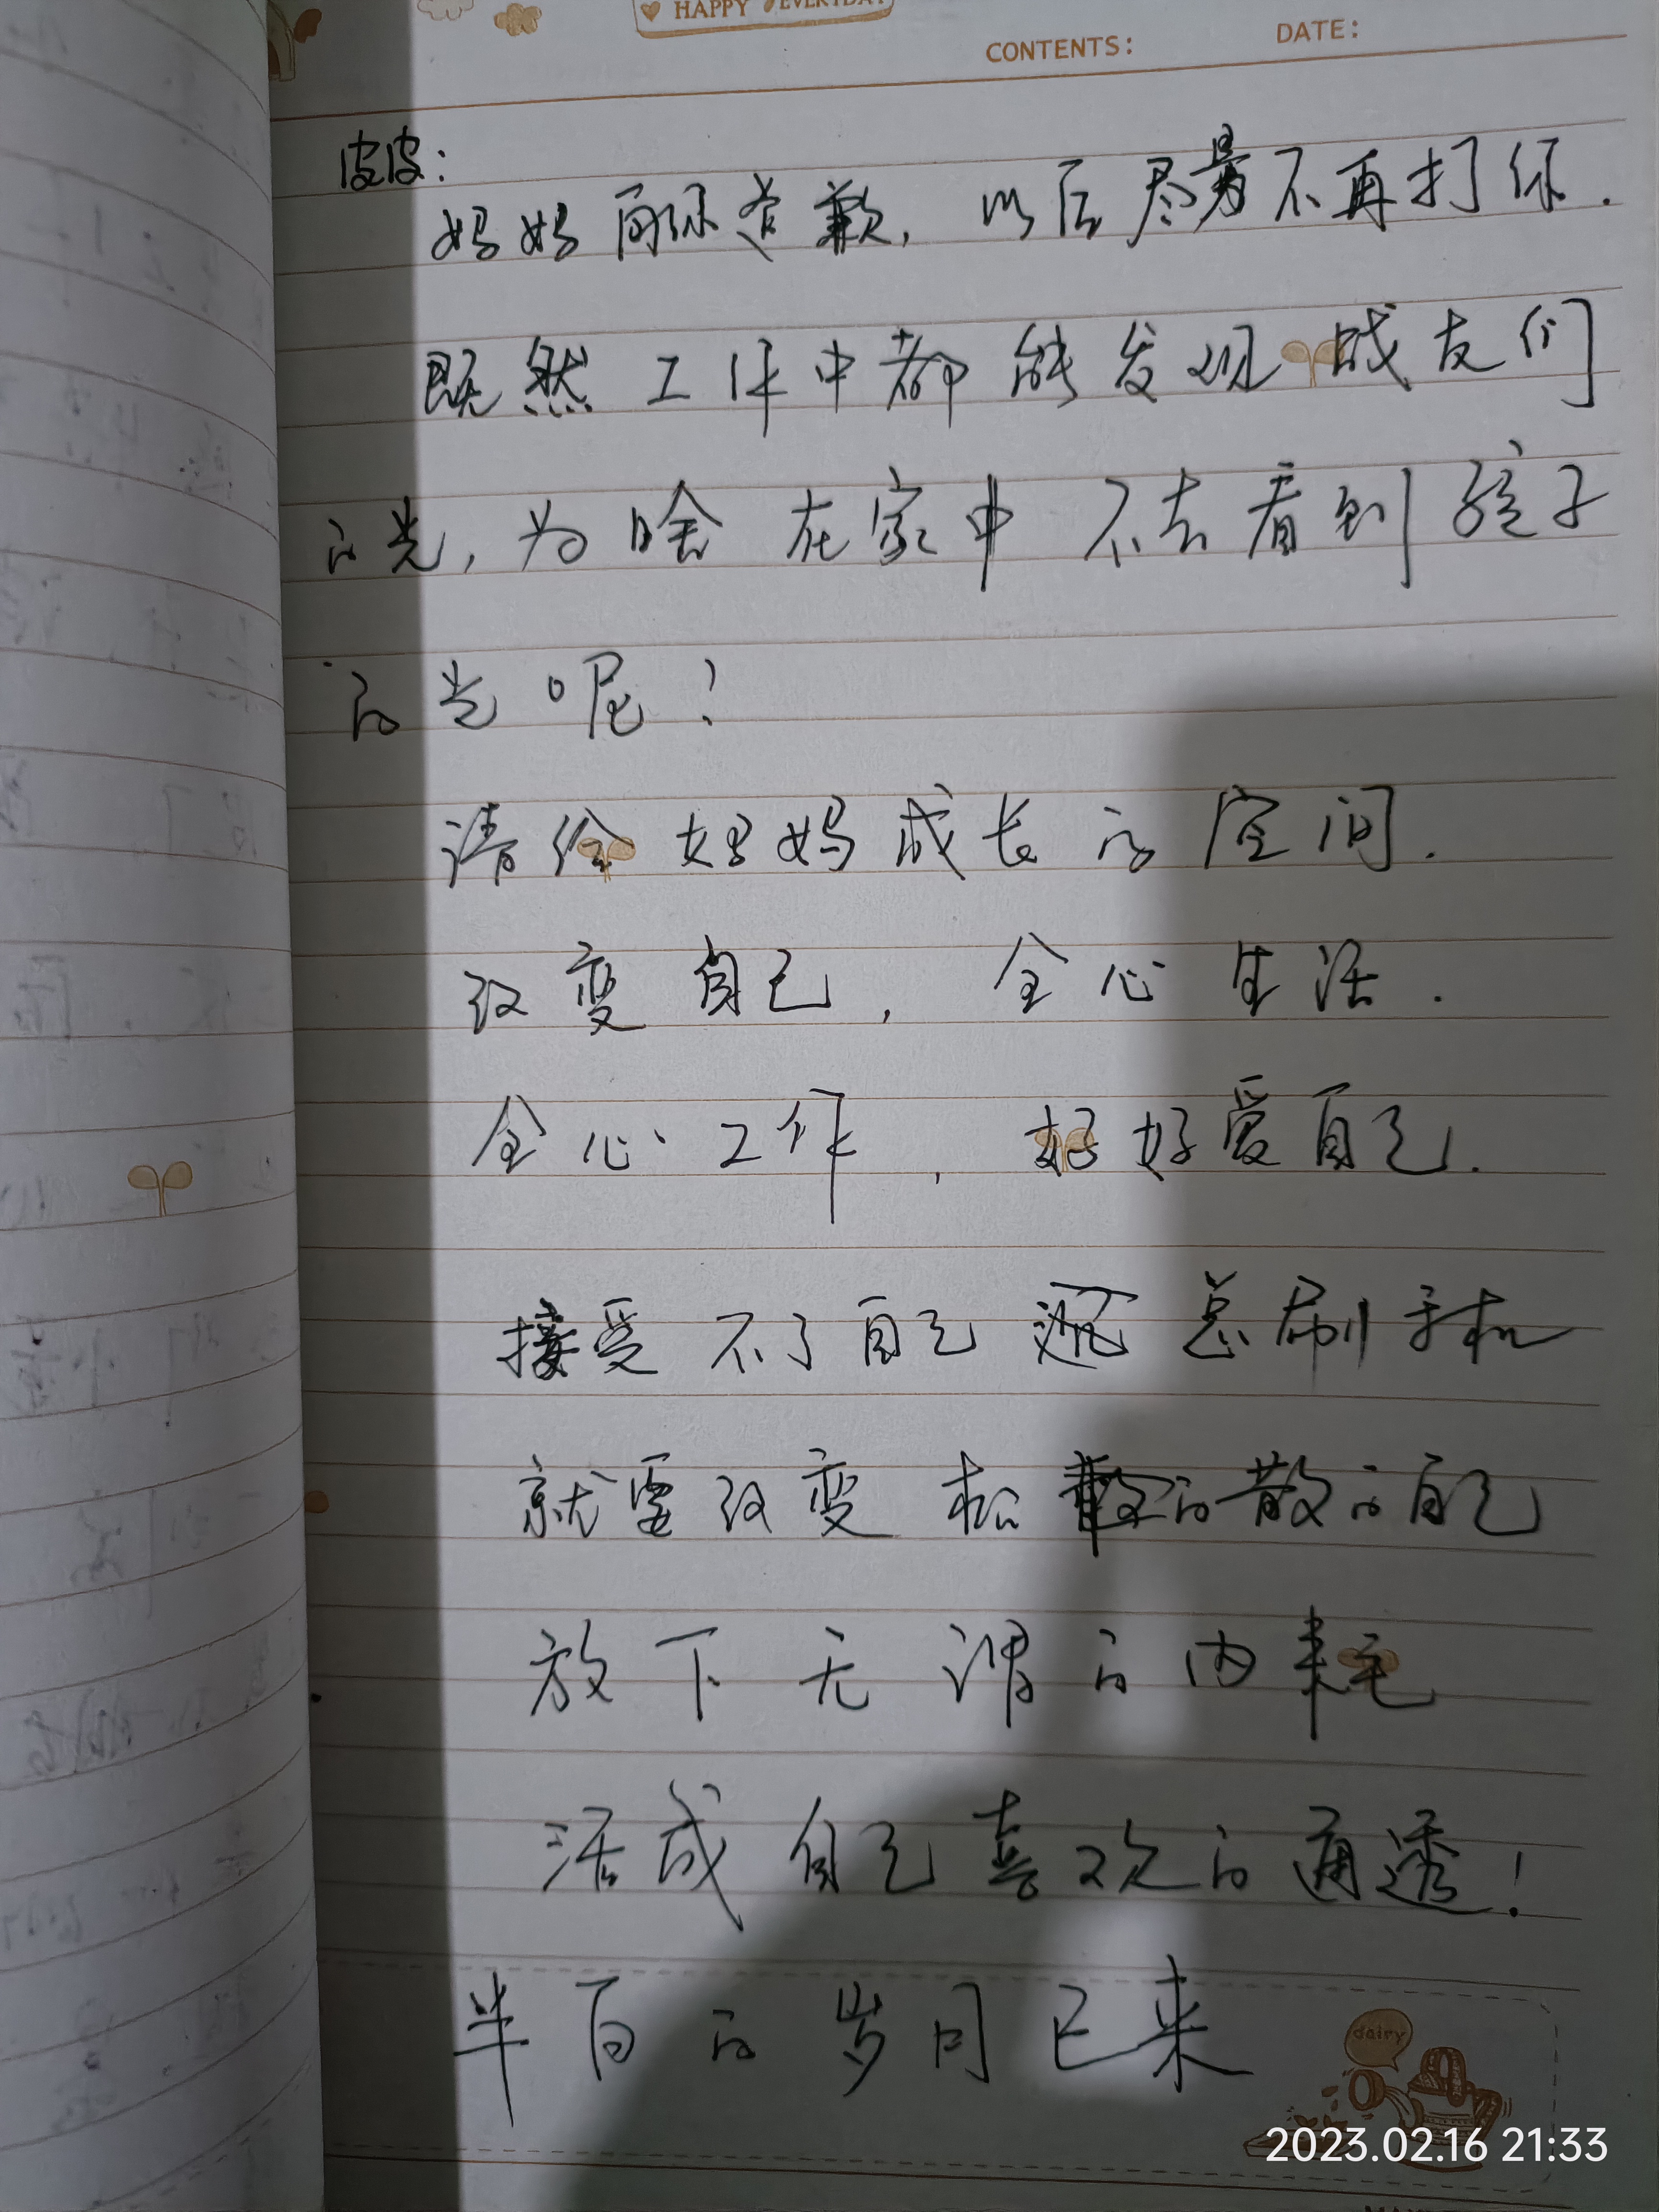 HAPPY EVERYDAY
CONTENTS: DATE:
皮皮:
妈妈向你道歉,以后尽量不再打你.
既然工作中都能发现战友们
的光,为啥在家中不去看到孩子
的光呢?
请给妈妈成长的空间.
改变自己,全心生活.
全心工作,好好爱自己.
接受不了自己 总刷手机
就需改变松散的自己
放下无谓的内耗
活成自己喜欢的通透!
半百的岁月已来
dairy
2023.02.16 21:33